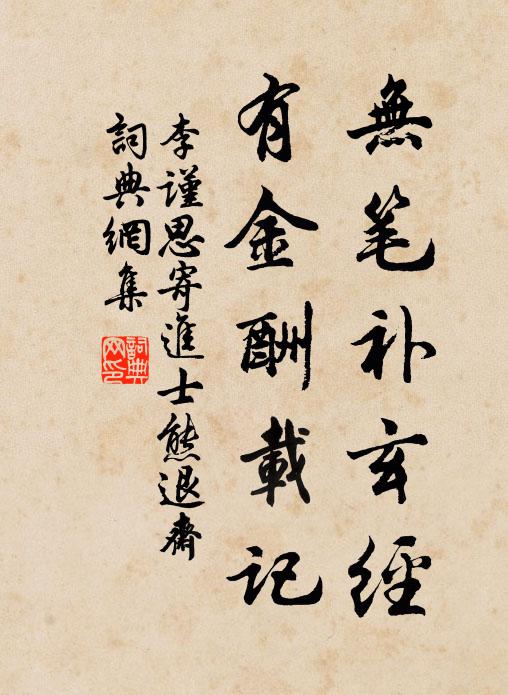 無笔补玄經
有金酬載記
李谨思寄進士熊退齋
詞典網集
詞典網印